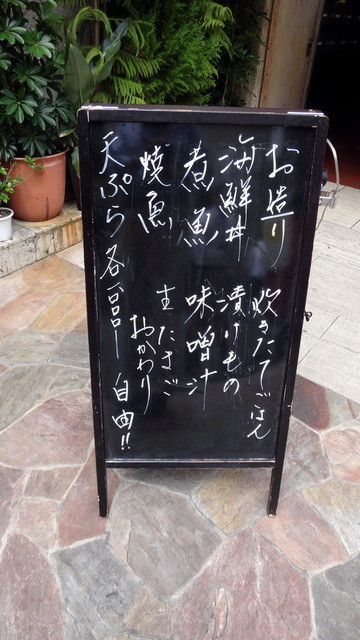 お造り
海鮮丼
煮魚
焼魚
天ぷら各一品
炊きたてごはん
漬けもの
味噌汁
生たまご
おかわり
自由!!